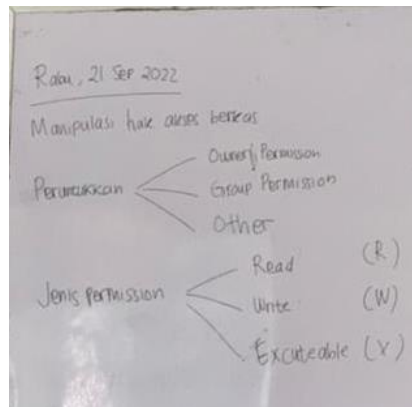 Rabu, 21 Sep 2022
Manipulasi hak akses berkas
Peruntukkan
Owner Permission
Group Permission
Other
Jenis Permission
Read (R)
Write (W)
Excuteable (X)